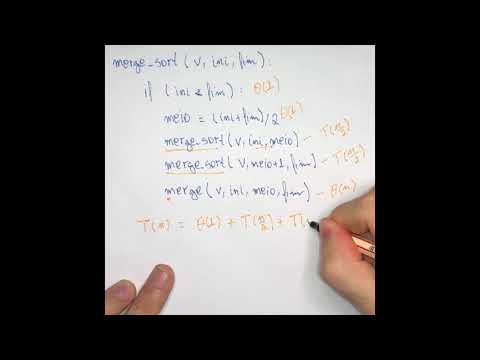 merge_sort (v, ini, fim):
if (ini < fim) : Θ(1)
meio = (ini+fim)/2 Θ(1)
merge_sort (v, ini, meio) - T(n/2)
merge_sort (v, meio+1, fim) - T(n/2)
merge (v, ini, meio, fim) - Θ(n)
T(n) = Θ(1) + T(n/2) + T(